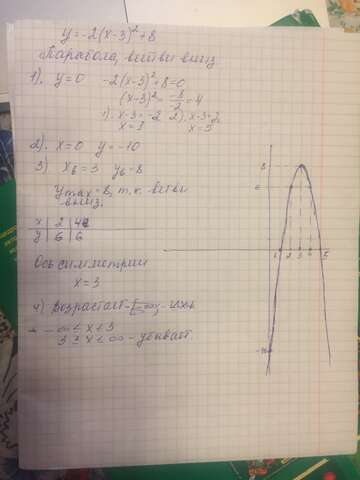 y=-2(x-3)²+8
Парабола, ветви вниз
1). y=0 -2(x-3)²+8=0
(x-3)²=-8/-2=4
1). x-3=-2 2). x-3=2
x=1 x=5
2). x=0 y=-10
3) xв=3 yв=8
ymax=8, т.к. ветви
вниз.
x 2 4
y 6 6
Ось симметрии
x=3
4) Возрастает
-∞ < x < 3
3 ≥ x < ∞ - убывает
8
6
1 2 3 4 5
-10